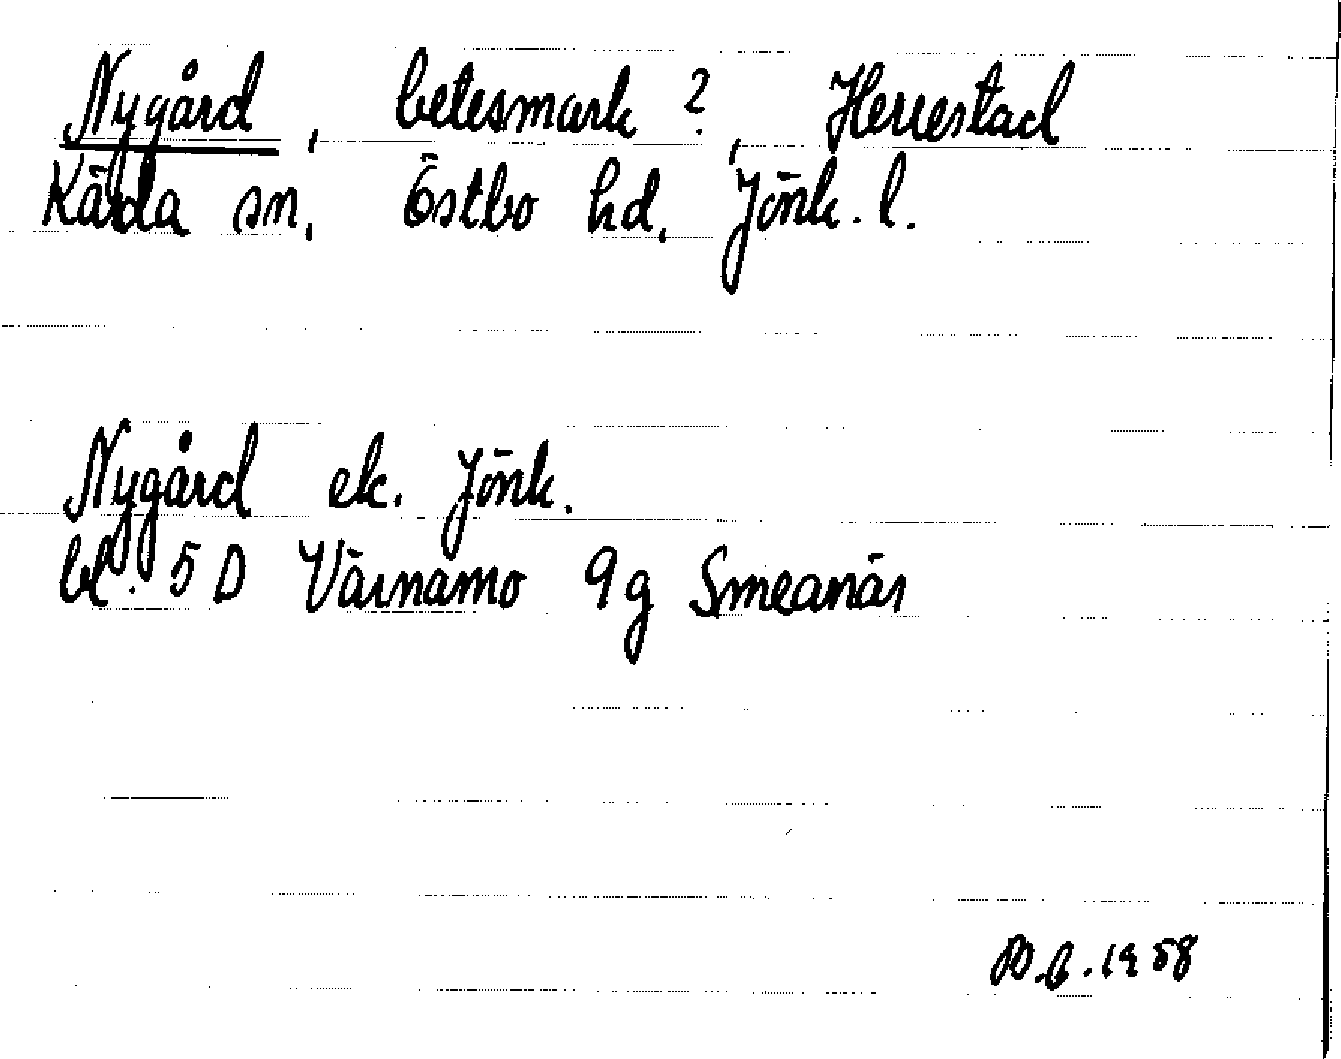 Nygård, betesmark?, Herrestad
Kärda sn, Östbo hd, Jönk. l.
Nygård ek. Jönk.
bl. 5 D Värnamo 9g Smeanäs
P.G. 1958